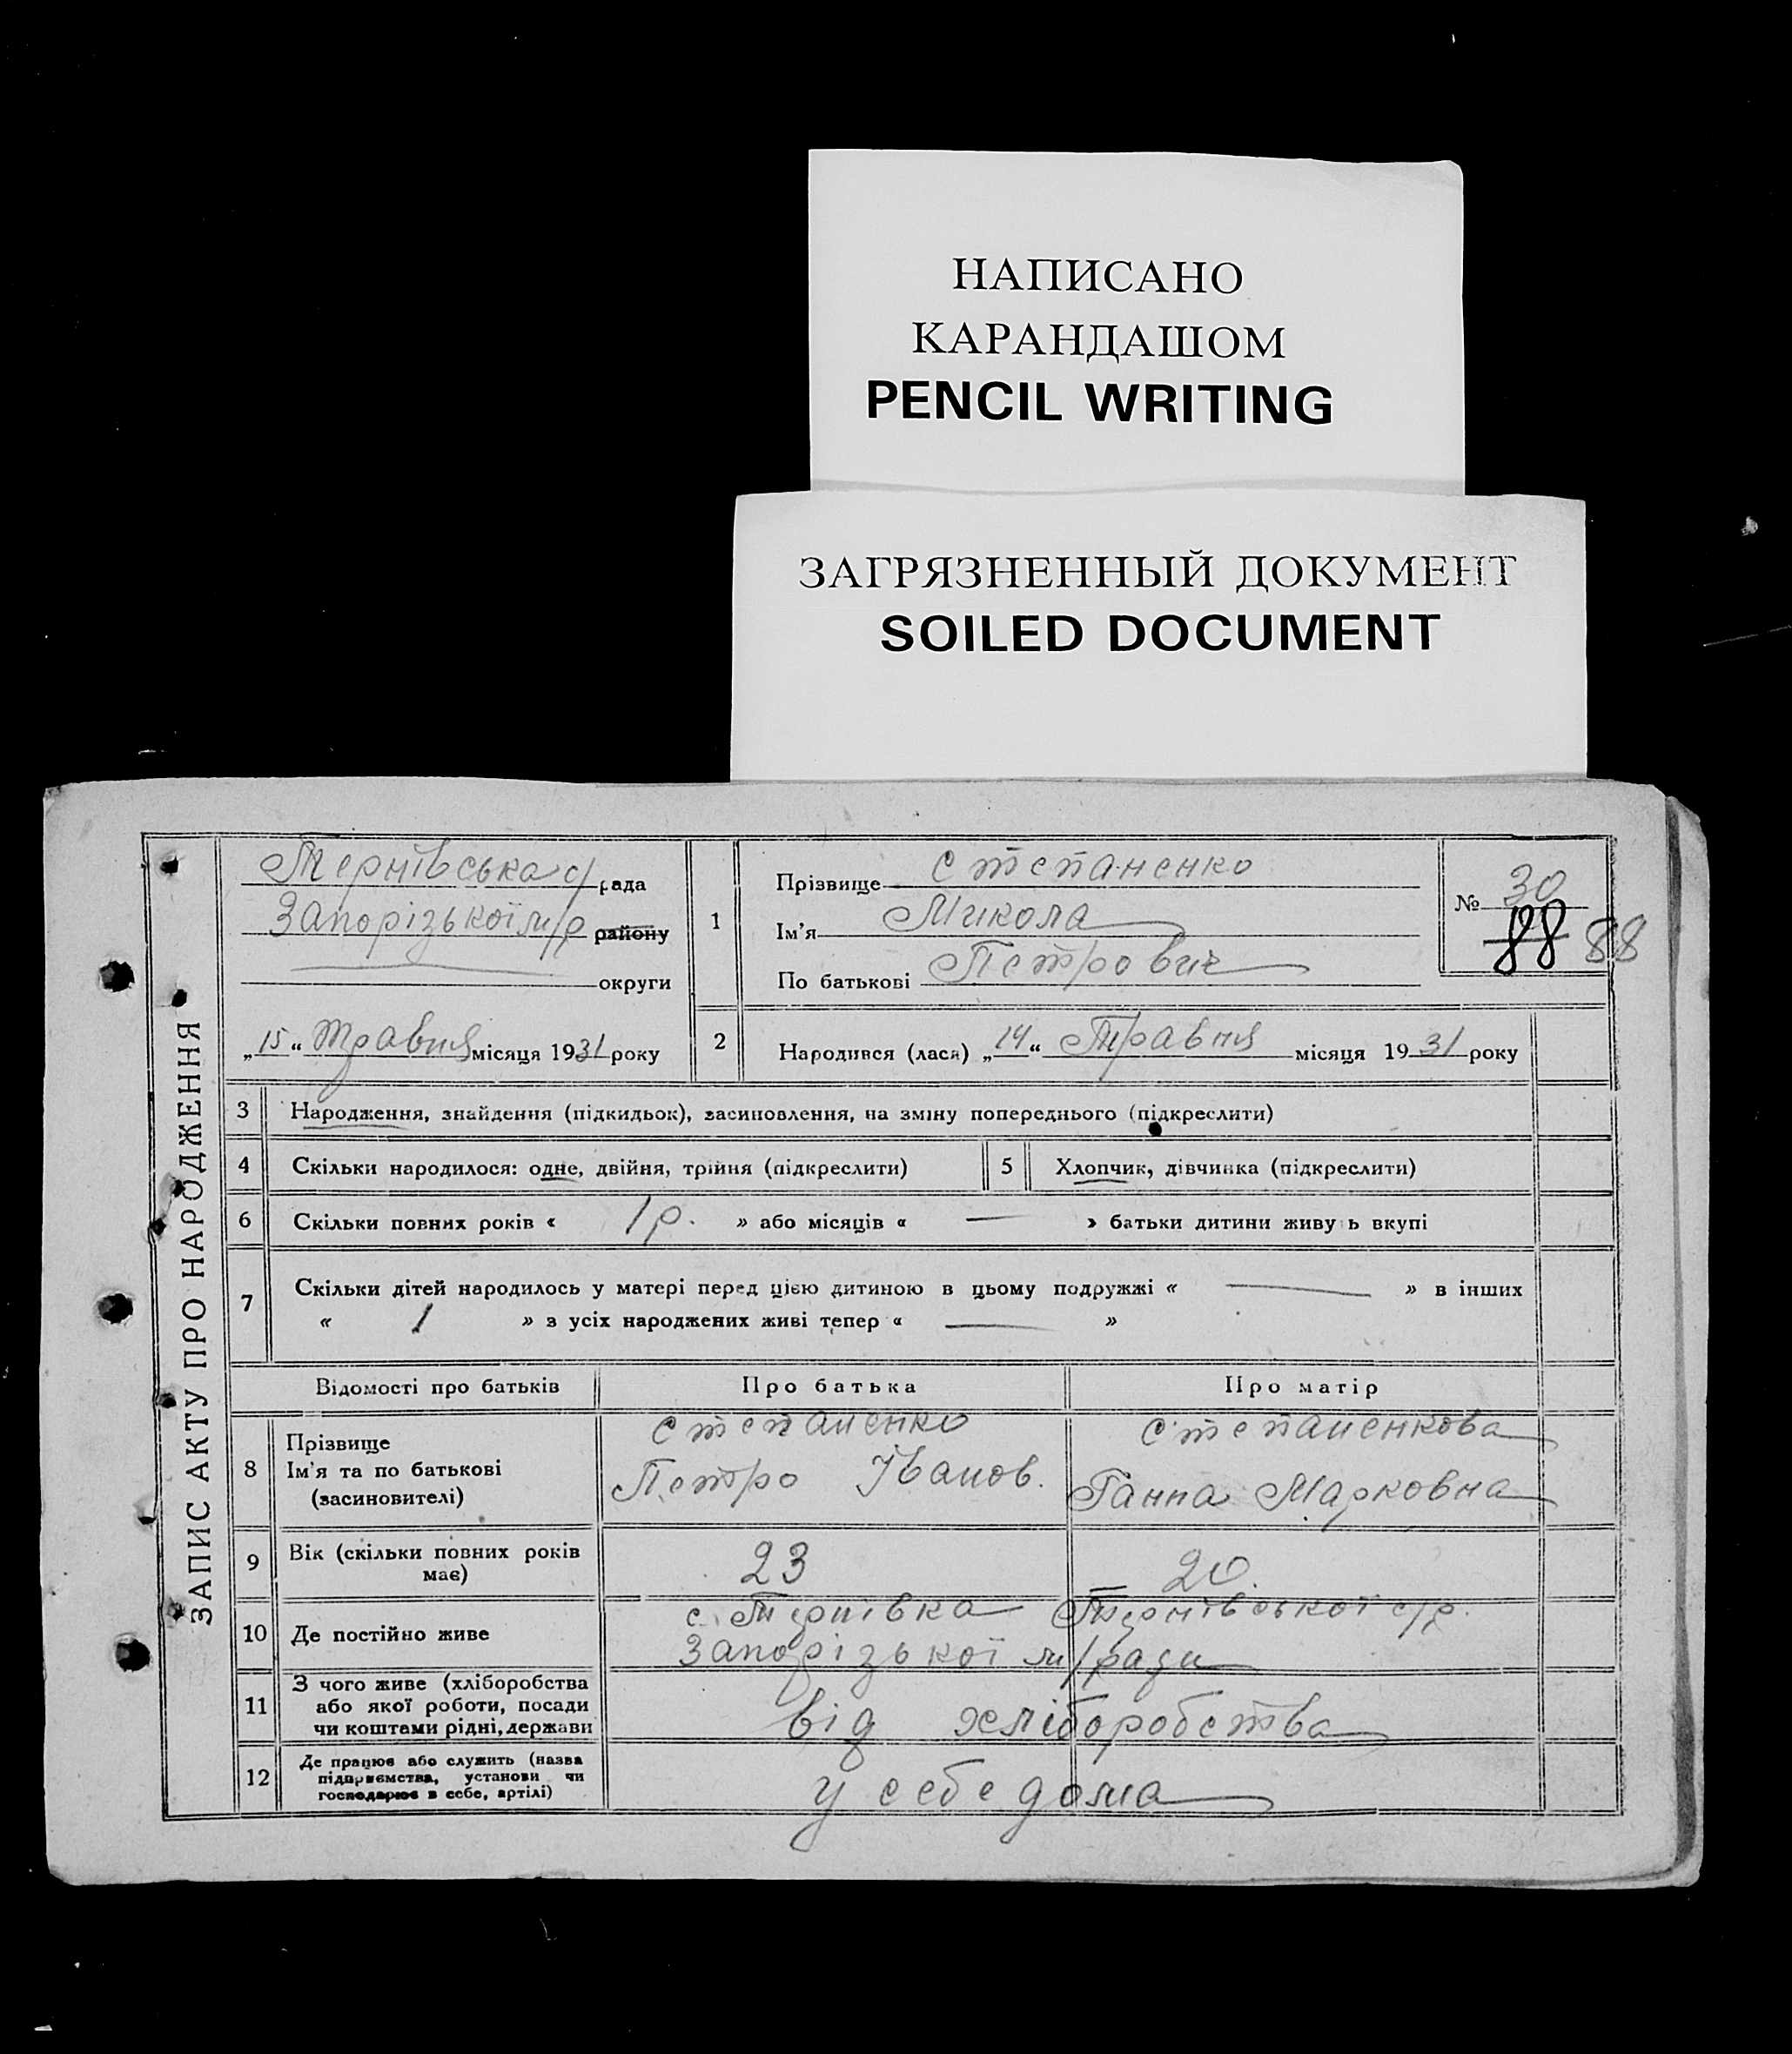 НАПИСАНО
КАРАНДАШОМ
PENCIL WRITING
ЗАГРЯЗНЕННЫЙ ДОКУМЕНТ
SOILED DOCUMENT
ЗАПИС АКТУ ПРО НАРОДЖЕННЯ
Тернівська с/рада
Запорізької м/р району
округи
„15“ Травня місяця 1931 року
1
Прізвище Степаненко
Ім'я Микола
По батькові Петрович
№ 30
88 88
2 Народився (лася) „14“ Травня місяця 1931 року
3 Народження, знайдення (підкидьок), засиновлення, на зміну попереднього (підкреслити)
4 Скільки народилося: одне, двійня, трійня (підкреслити) 5 Хлопчик, дівчинка (підкреслити)
6 Скільки повних років « 1 р. » або місяців « — » батьки дитини живуть вкупі
7 Скільки дітей народилось у матері перед цією дитиною в цьому подружжі « — » в інших
« 1 » з усіх народжених живі тепер « — »
Відомості про батьків Про батька Про матір
8 Прізвище Ім'я та по батькові (засиновителі)
Степаненко Степаненкова
Петро Іванов. Ганна Марковна
9 Вік (скільки повних років має) 23 20.
10 Де постійно живе с. Тернівка Тернівської с/р.
Запорізької м/ради
11 З чого живе (хліборобства
або якої роботи, посади
чи коштами рідні, держави
від хліборобства
12 Де працює або служить (назва
підприємства, установи чи
господарює в себе, артілі)
у себе дома